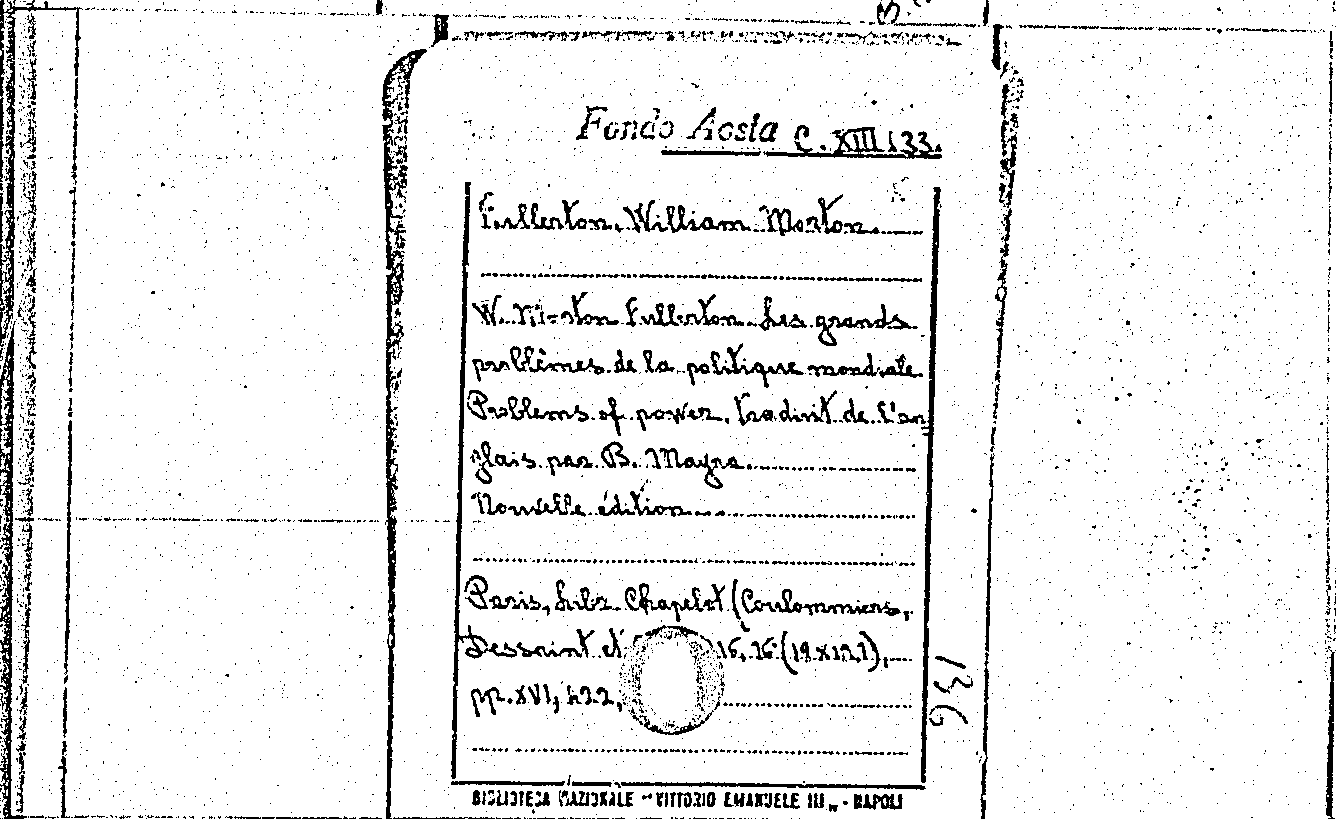 Fondo Aosta C. XIII 133.
Fullerton, William Morton.
W. Morton Fullerton. Les grands
problèmes de la politique mondiale.
Problems of power. Traduit de l'an
glais par B. Mayra.
Nouvelle édition
Paris, Libr. Chapelot (Coulommiers,
Dessaint et 16, 16° (19x12,1),
pp. XVI, 422,
136
BIBLIOTECA NAZIONALE "VITTORIO EMANUELE III" - NAPOLI